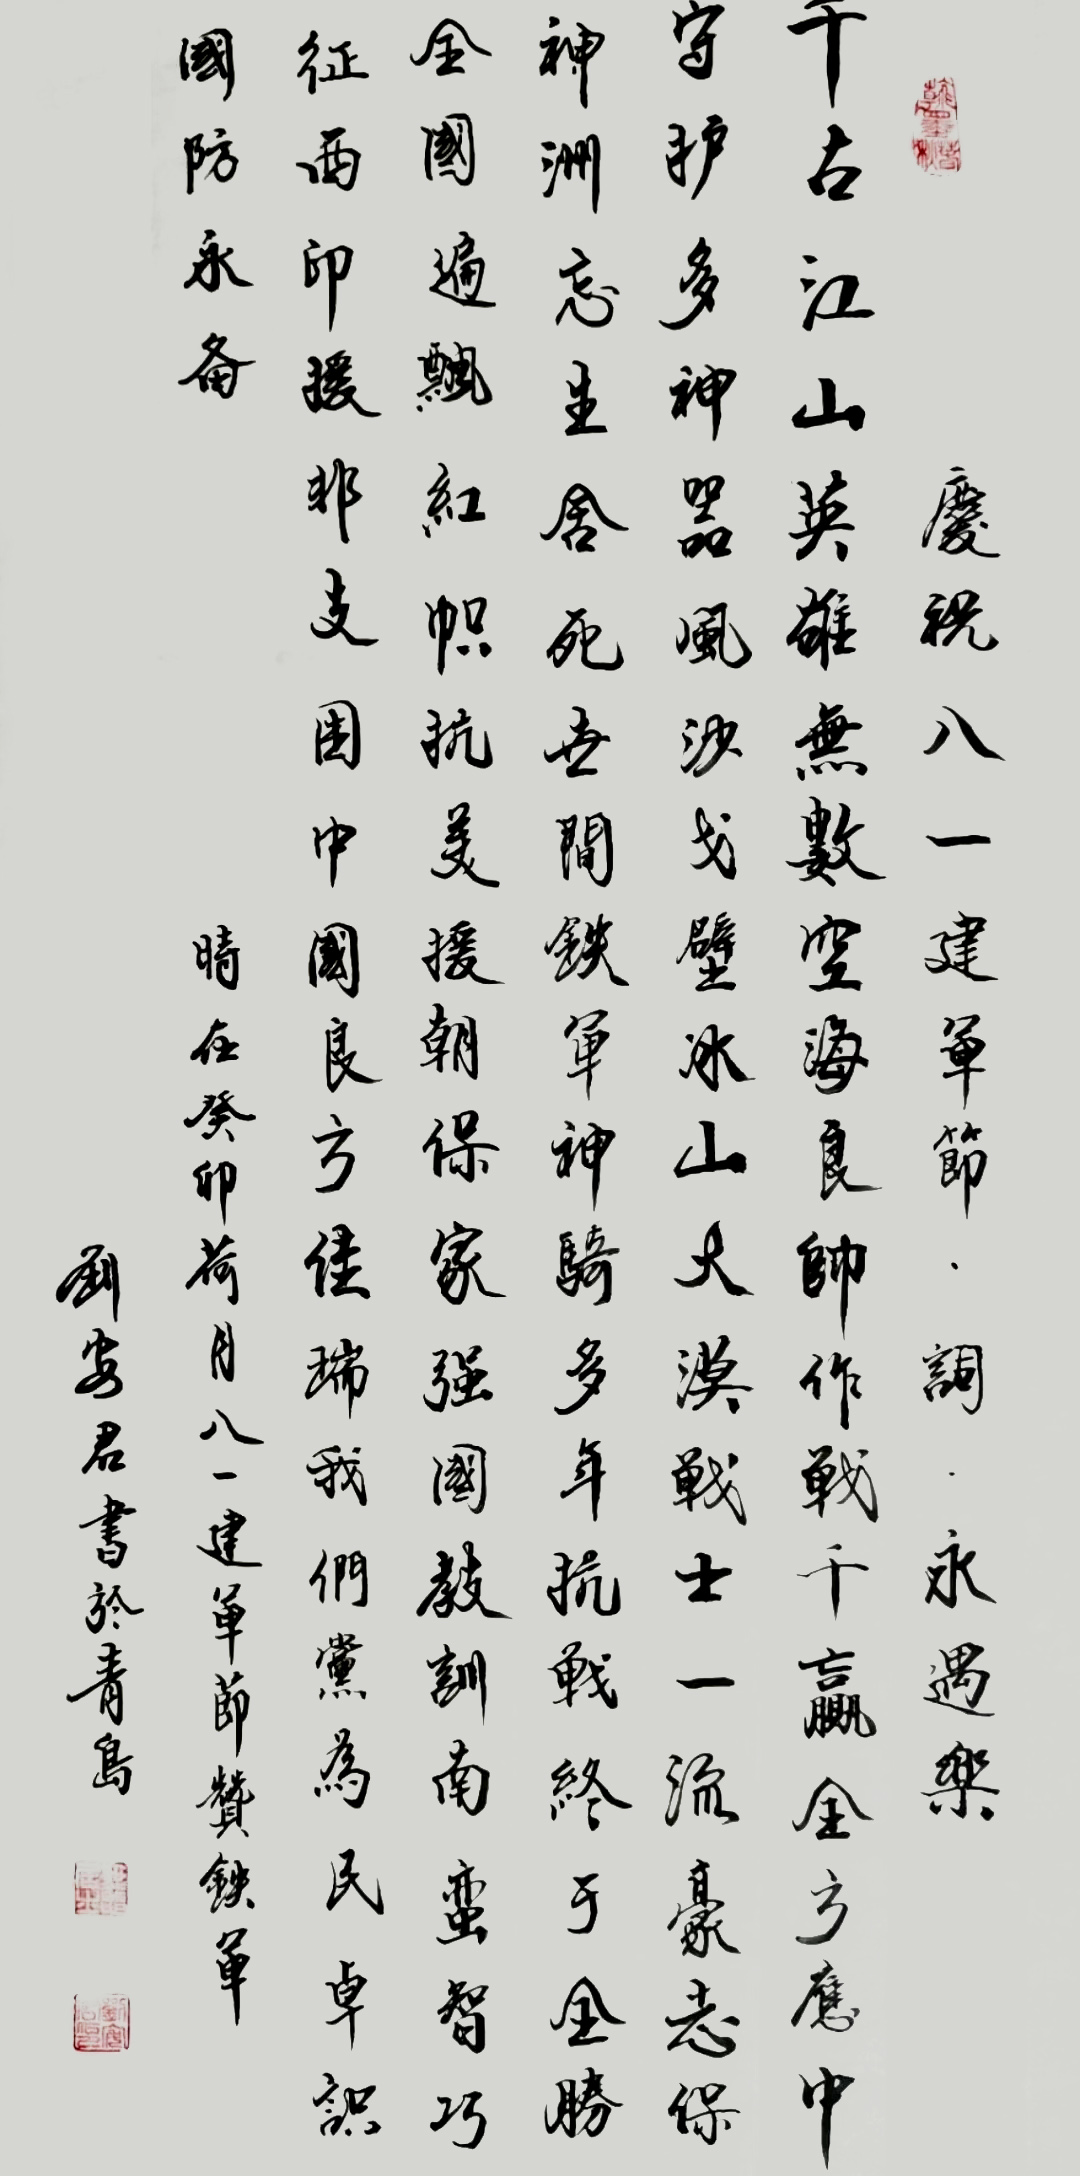 慶祝八一建軍節·調·永遇樂
千古江山英雄無數空海良帥作戰千贏全方應中
守护多神器風沙戈壁冰山大漠戰士一流豪志保
神洲忘生舍死世間鉄軍神騎多年抗戰終于全勝
全國遍飄紅幟抗美援朝保家强國教訓南蛮智巧
征西印援非支困中國良方佳瑞我們黨為民卓識
國防永备
時在癸卯荷月八一建軍節贊鉄軍
劉安君書於青島